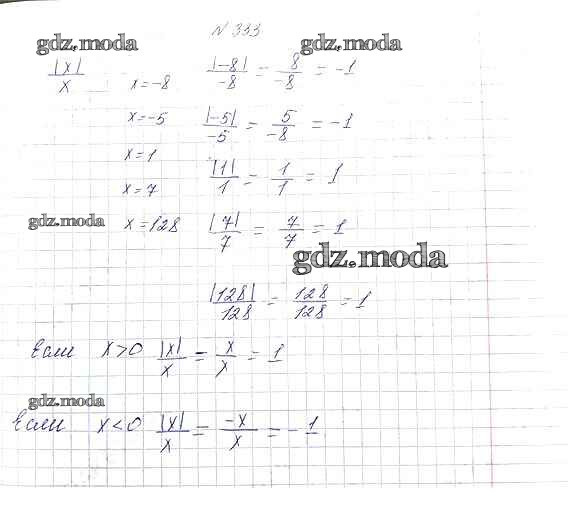 N 333
gdz.moda gdz.moda
|x|/x x=-8 |-8|/-8 = 8/-8 = -1
x=-5 |-5|/-5 = 5/-8 = -1
x=1 |1|/1 = 1/1 = 1
x=7
gdz.moda x=128 |7|/7 = 7/7 = 1
gdz.moda
|128|/128 = 128/128 = 1
Если x>0 |x|/x = x/x = 1
gdz.moda
Если x<0 |x|/x = -x/x = -1